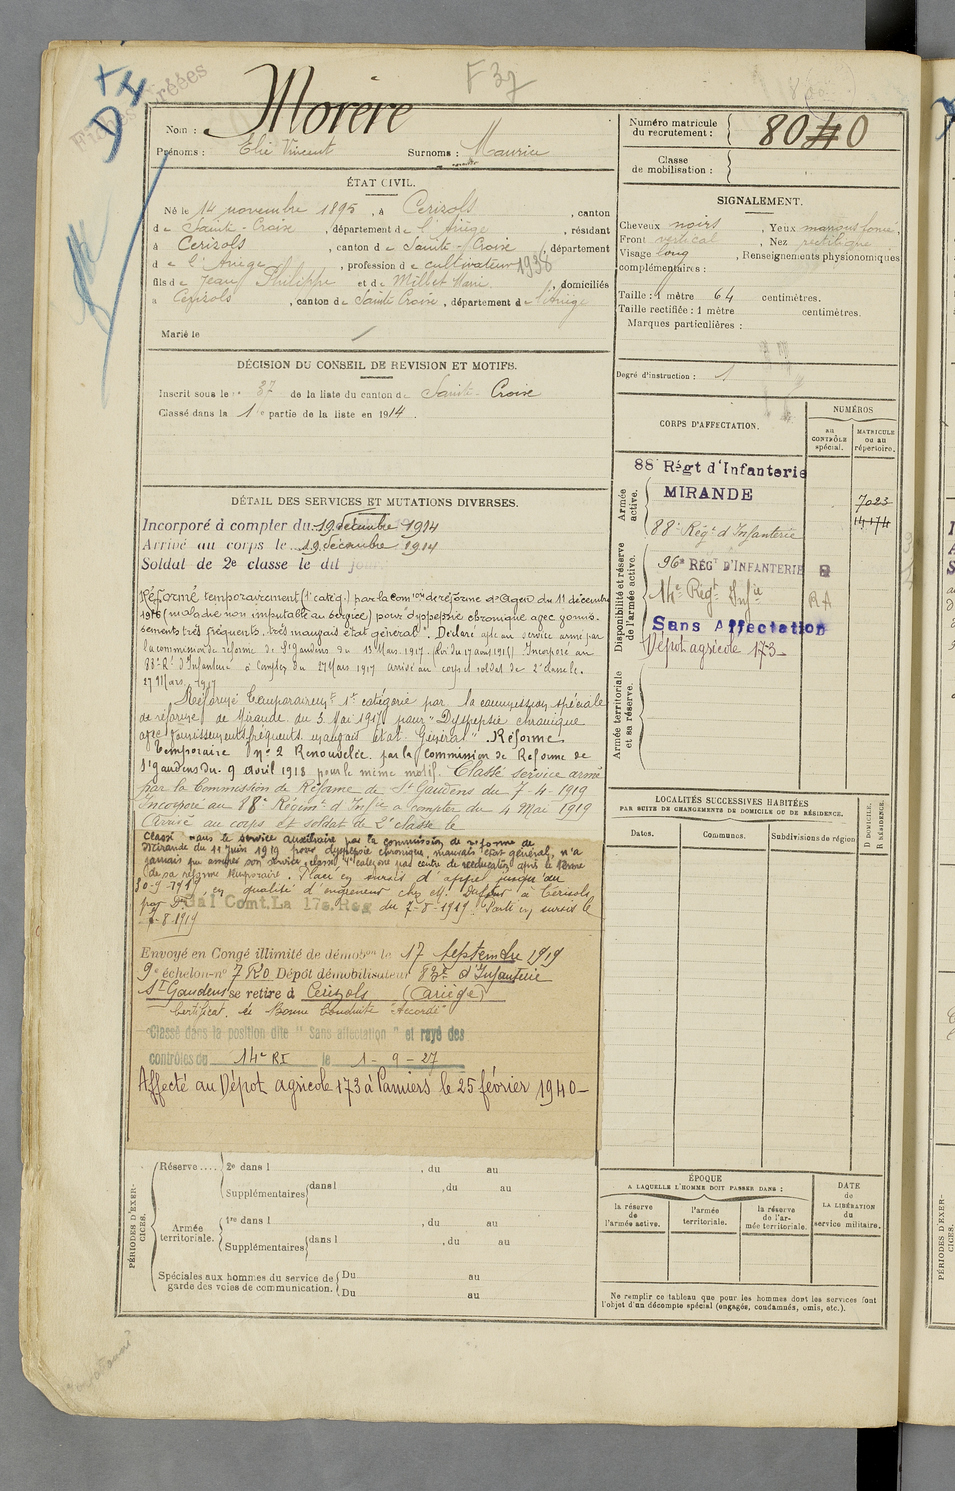 F 37
Morère
Nom :
Prénoms : Elie Vincent Surnoms : Maurice
ÉTAT CIVIL.
Né le 14 novembre 1895, à Cerizols, canton
de Sainte-Croise, département de l'Ariège, résidant
à Cerizols, canton de Sainte-Croise, département
de l'Ariège, profession de cultivateur 1938
fils de Jean Philippe et de Millet Marie, domiciliés
à Cerizols, canton de Sainte Croise, département de l'Ariège
Marié le
DÉCISION DU CONSEIL DE REVISION ET MOTIFS.
Inscrit sous le n° 37 de la liste du canton de Sainte-Croise
Classé dans la 1re partie de la liste en 1914.
DÉTAIL DES SERVICES ET MUTATIONS DIVERSES.
Incorporé à compter du 19 décembre 1914
Arrivé au corps le 19 décembre 1914
Soldat de 2e classe le dit jour
Réformé temporairement (1e catég.) par la comon de réforme d'Agen du 11 décembre
1916 (maladie non imputable au service) pour dyspepsie chronique avec vomis-
sements très fréquents. très mauvais état général". Déclaré apte au service armé par
la commission de réforme de St Gaudens du 13 Mars 1917. (Loi du 17 août 1915) Incorporé au
88e Rt d'Infanterie à compter du 27 Mars 1917 arrivé au corps et soldat de 2e classe le
27 Mars 1917
Réformé Temporairemt 1e catégorie par la commission spéciale
de réforme de Mirande du 3 Mai 1917 pour "Dyspepsie chronique
avec vomissements fréquents mauvais état Général" Réforme
temporaire n° 2 Renouvelée par la Commission de Réforme de
St Gaudens du 9 avril 1918 pour le même motif. Classé service armé
par la Commission de Réforme de St Gaudens du 7-4-1919
Incorporé au 88e Régimt d'Infie à compter du 4 Mai 1919
Arrivé au corps et soldat de 2e classe le
Classé dans le service auxiliaire par la commission de réforme de
Mirande du 11 juin 1919 pour dyspepsie chronique, mauvais état général, n'a
jamais pu assurer son service, classé 4e catégorie pas centre de rééducation après le terme
de sa réforme temporaire. Placé en sursis d'appel jusqu'au
30-9-1919, en qualité d'ingénieur chez M. Duffour à Cerizols
par Dn Gal Comt. La 17e Reg du 7-8-1919. Parti en sursis le
7-8-1919
Envoyé en Congé illimité de démobon le 17 septembre 1919
9e échelon n° 7 RO Dépôt démobilisateur 83e d'Infanterie
St Gaudens se retire à Cerizols (Ariège)
Certificat de Bonne Conduite "Accordé"
Classé dans la position dite "Sans affectation" et rayé des
contrôles du 14e RI le 1-9-27
Affecté au Dépôt agricole 173 à Pamiers le 25 février 1940-
PÉRIODES D'EXERCICES.
Réserve.... 2e dans l , du au
Supplémentaires dans l , du au
Armée territoriale. 1re dans l , du au
Supplémentaires dans l , du au
Spéciales aux hommes du service de garde des voies de communication. Du au
Du au
Numéro matricule du recrutement : 8040
Classe de mobilisation :
SIGNALEMENT.
Cheveux noirs, Yeux marrons foncé,
Front vertical, Nez rectiligne,
Visage long, Renseignements physionomiques
complémentaires :
Taille : 1 mètre 64 centimètres.
Taille rectifiée : 1 mètre centimètres.
Marques particulières :
Degré d'instruction : 1
CORPS D'AFFECTATION.
NUMÉROS
au CONTRÔLE spécial.
MATRICULE ou au répertoire.
Armée active.
88 Régt d'Infanterie
MIRANDE
7023
88e Régt d'Infanterie
14174
Disponibilité et réserve de l'armée active.
96e RÉGT D'INFANTERIE
14e Régt Infie RA
Sans Affectation
Dépôt agricole 173-
Armée territoriale et sa réserve.
LOCALITÉS SUCCESSIVES HABITÉES
PAR SUITE DE CHANGEMENTS DE DOMICILE OU DE RÉSIDENCE.
Dates. Communes. Subdivisions de région
D DOMICILE. R RÉSIDENCE.
ÉPOQUE
A LAQUELLE L'HOMME DOIT PASSER DANS :
la réserve de l'armée active.
l'armée territoriale.
la réserve de l'armée territoriale.
DATE de LA LIBÉRATION du service militaire.
Ne remplir ce tableau que pour les hommes dont les services font
l'objet d'un décompte spécial (engagés, condamnés, omis, etc.).